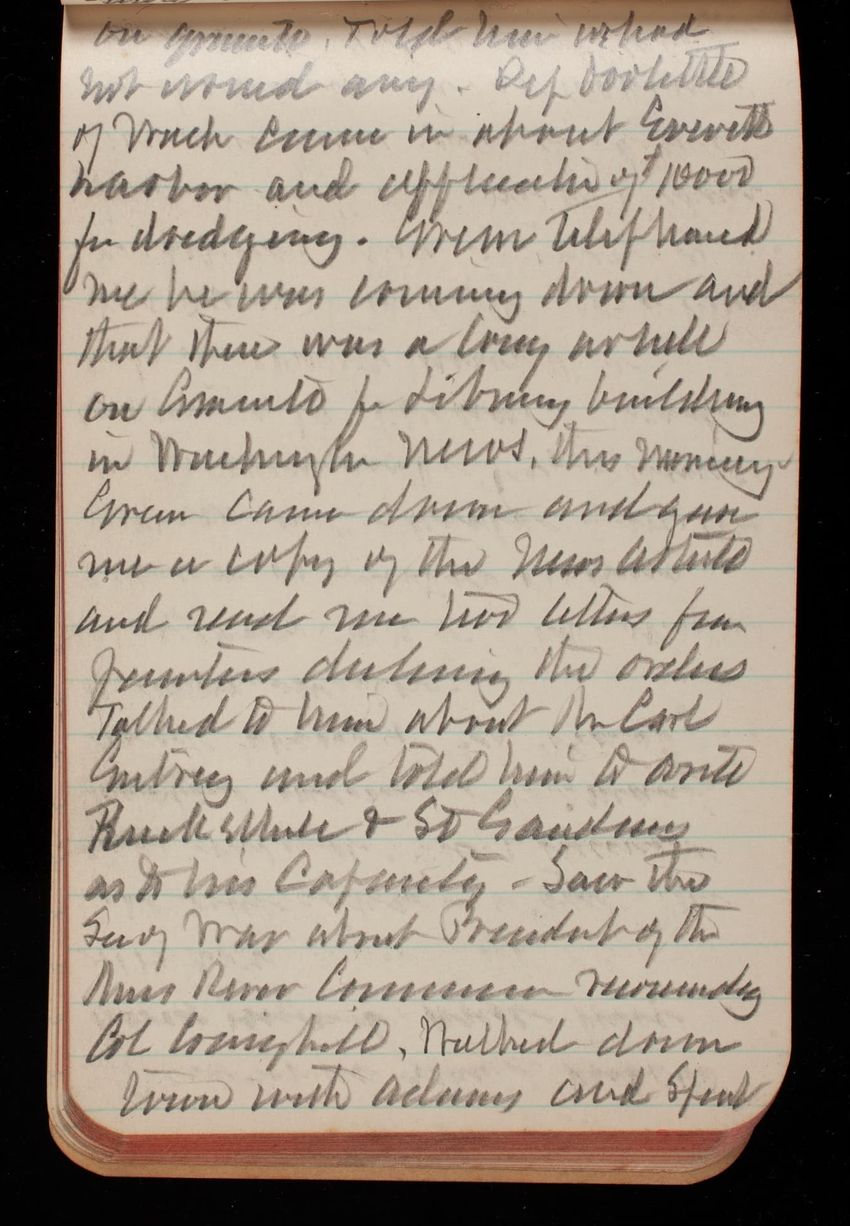 on granite. Told him we had
not issued any. Rep Doolittle
of Wash came in about Everett
harbor and application of $10000
for dredging. Green telephoned
me he was coming down and
that there was a long article
on Granite for Library building
in Washington News, this morning
Green came down and gave
me a copy of the News article
and read me two letters from
painters declining the orders
Talked to him about Mr Carl
Gutherz and told him to write
Ruckstuhl & St Gaudens
as to his Capacity - Saw the
Secy War about President of the
Miss River Commission recommending
Col Craighill, Walked down
town with Adams and Spent